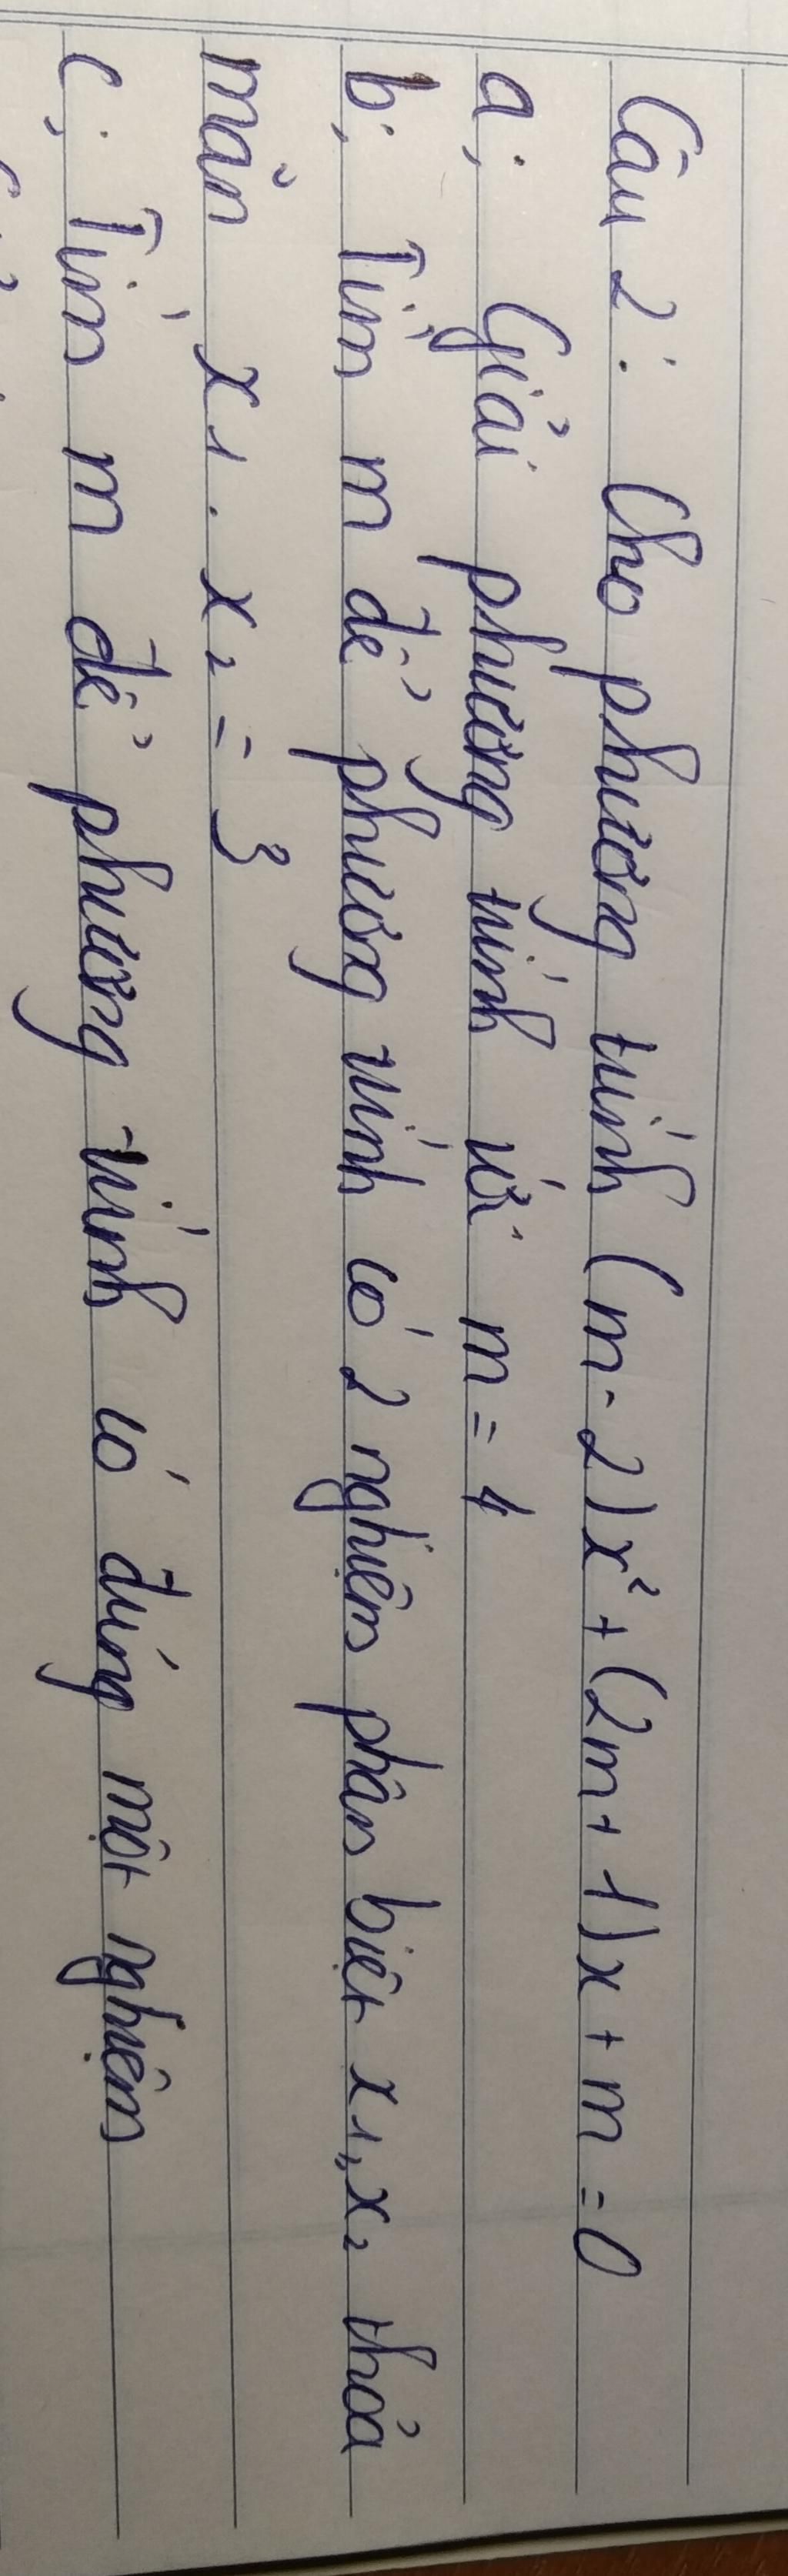 Câu 2: Cho phương trình (m-2)x² + (2m+1)x + m = 0
a, Giải phương trình với m = 4
b, Tìm m để phương trình có 2 nghiệm phân biệt x1, x2 thỏa
mãn x1 . x2 = 3
c, Tìm m để phương trình có đúng một nghiệm